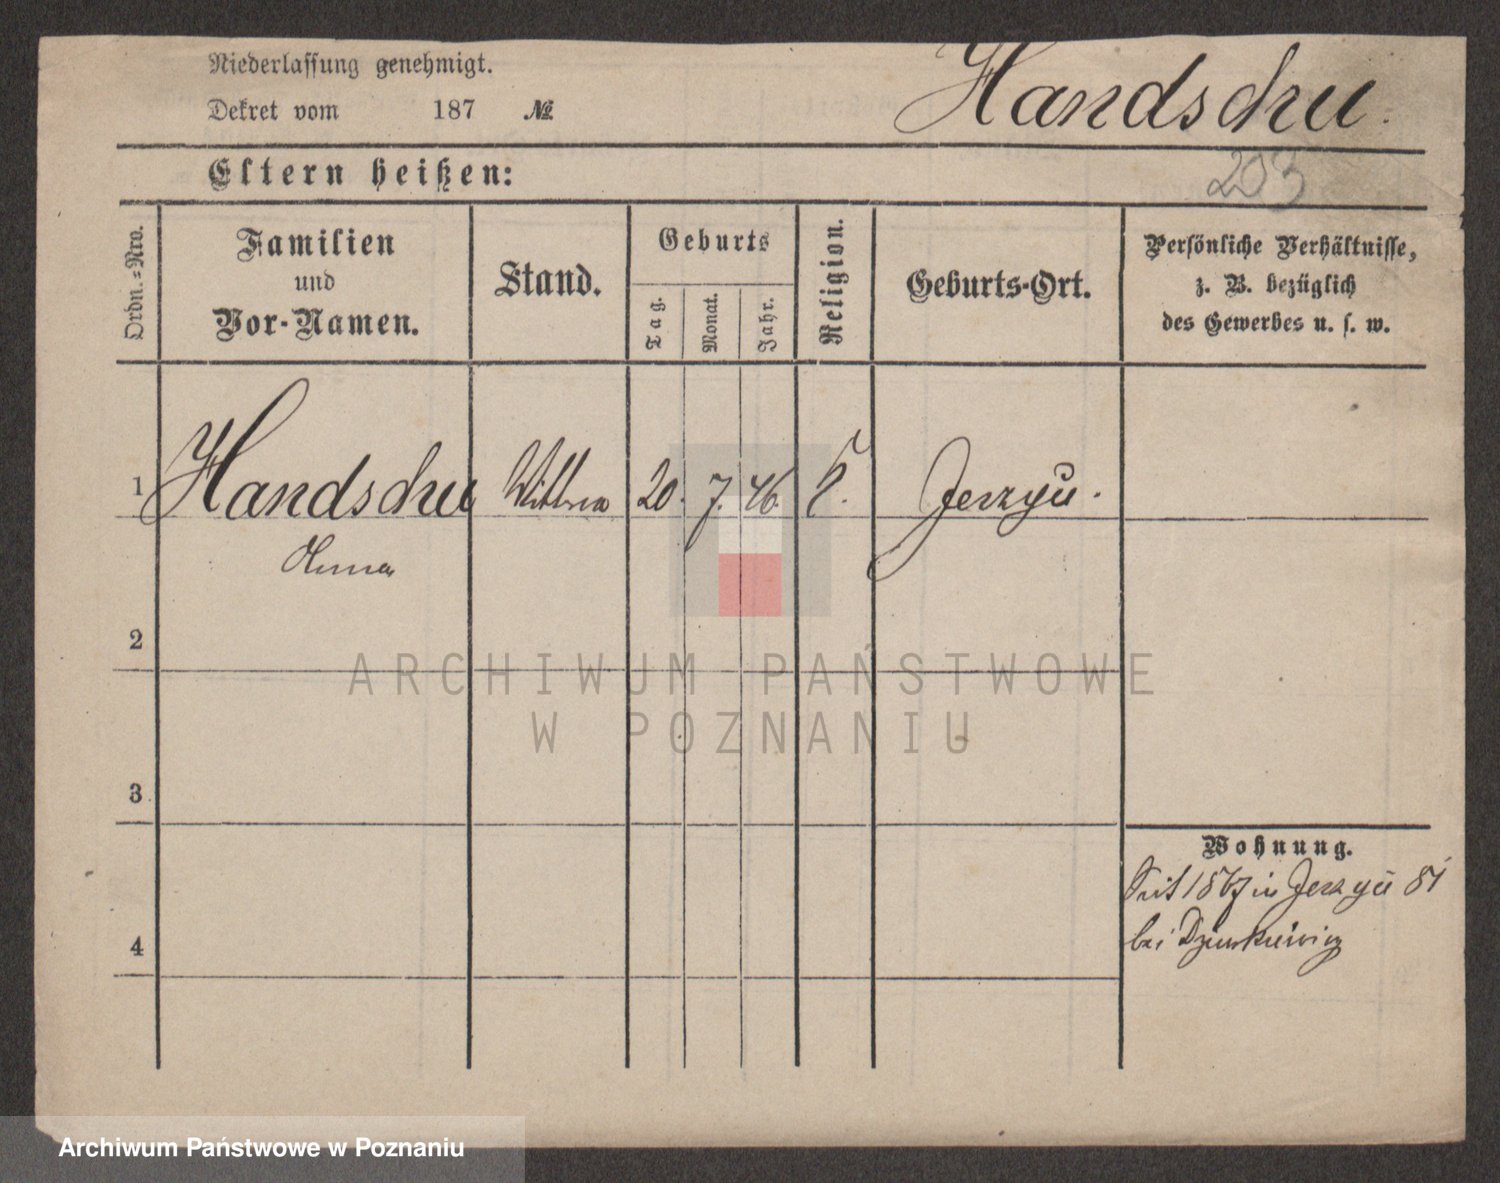 Niederlassung genehmigt.
Handschu.
Dekret vom 187 №
Eltern heißen:
203
Ordn.=Nro.
Familien
und
Vor-Namen.
Stand.
Geburts
Tag.
Monat.
Jahr.
Religion.
Geburts-Ort.
Persönliche Verhältnisse,
z. B. bezüglich
des Gewerbes u. s. w.
1 Handschu Wittwe 20. 7. 46. Jerzyce.
Anna
2
ARCHIWUM PAŃSTWOWE
W POZNANIU
3
Wohnung.
Seit 1867 in
bei
4
Archiwum Państwowe w Poznaniu